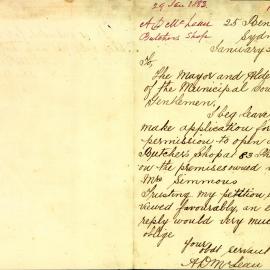 29 Jan 1883
A D McLean
Butchers Shop
25 Ben
Sydn
January
To,
The Mayor and Alde
of the Municipal Cou
Gentlemen,
I beg leave
make application for
permission to open a
Butcher's Shop at 83
on the premises owned
Mrs Simmons
Trusting my petition
viewed favourably, an e
reply would very muc
oblige
Your
obdt servant
A D McLean